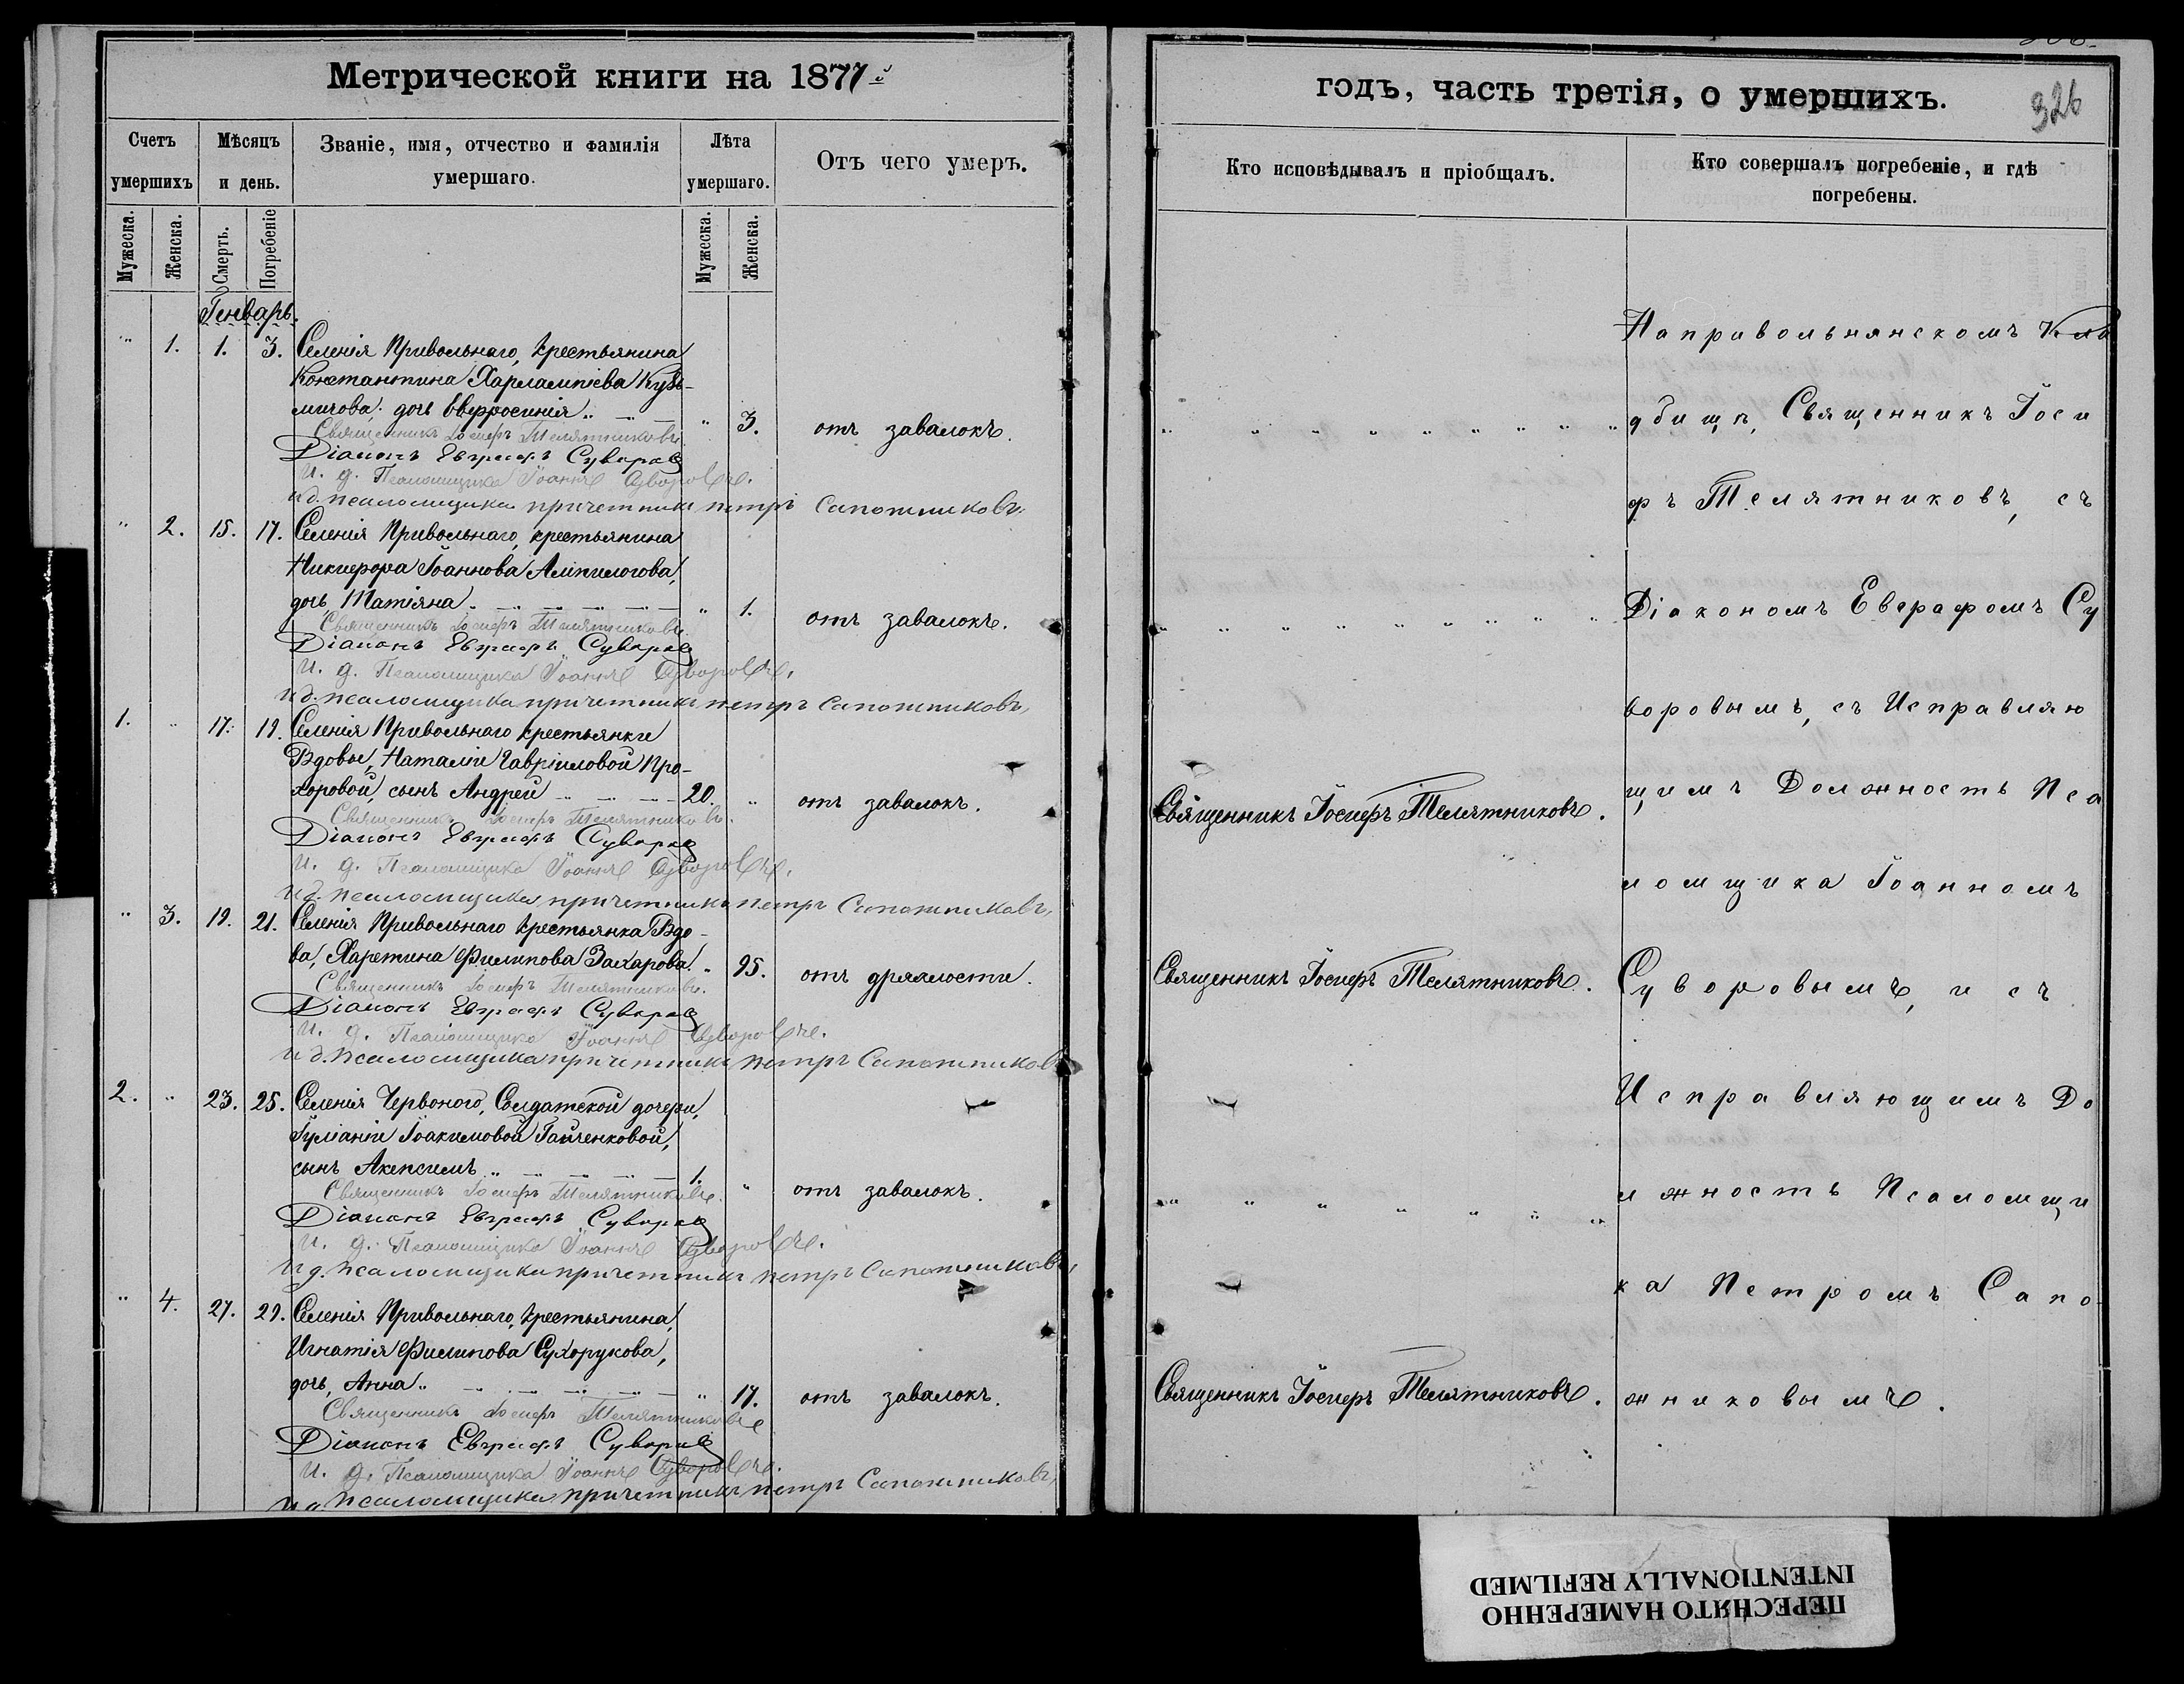 Метрической книги на 1877й
Счетъ умершихъ
Мѣсяцъ и день.
Званіе, имя, отчество и фамилія умершаго.
Лѣта умершаго.
Отъ чего умеръ.
Мужеска.
Женска.
Смерть.
Погребеніе
Мужеска.
Женска.
Генварь.
" 1. 1. 3. Селенія Привольнаго, крестьянина
Константина Харлампіева Кузь-
мичова, дочь Евфросинія " 3. отъ завалокъ.
Священникъ Іосифъ Телятниковъ.
Діаконъ Евграфъ Суворов
И. д. Псаломщика Іоаннъ Суворовъ.
и д. псаломщика причетникъ петръ Сапожниковъ
" 2. 15. 17. Селенія Привольнаго, крестьянина
Никифора Іоаннова Алпилогова,
дочь, Татіяна " 1. отъ завалокъ.
Священникъ Іосифъ Телятниковъ.
Діаконъ Евграфъ Суворов
И. д. Псаломщика Іоаннъ Суворовъ.
и д. псаломщика причетникъ петръ Сапожниковъ,
1. " 17. 19. Селенія Привольнаго крестьянки
Вдовы, Наталіи Гавріиловой Про-
хоровой, сынъ Андрей 20. " отъ завалокъ.
Священникъ Іосифъ Телятниковъ.
Діаконъ Евграфъ Суворов
И. д. Псаломщика Іоаннъ Суворовъ.
и д. псаломщика причетникъ петръ Сапожниковъ,
" 3. 19. 21. Селенія Привольнаго крестьянка Вдо-
ва, Харетина Филипова Захарова. " 95. отъ дряхлости.
Священникъ Іосифъ Телятниковъ.
Діаконъ Евграфъ Суворов
И. д. Псаломщика Іоаннъ Суворовъ.
и д. псаломщика причетникъ петръ Сапожников
2. " 23. 25. Селенія Червоного, Солдатской дочери,
Іуліаніи Іоакимовой Гайченковой,
сынъ Акепсимъ 1. " отъ завалокъ.
Священникъ Іосифъ Телятниковъ.
Діаконъ Евграфъ Суворов
И. д. Псаломщика Іоаннъ Суворовъ.
и д. псаломщика причетникъ петръ Сапожниковъ,
" 4. 27. 29. Селенія Привольнаго, крестьянина,
Игнатія Филипова Сухорукова,
дочь, Анна " 17. отъ завалокъ.
Священникъ Іосифъ Телятниковъ
Діаконъ Евграфъ Суворов
И. д. Псаломщика Іоаннъ Суворовъ.
и д псаломщика причетникъ петръ Сапожниковъ,
годъ, часть третія, о умершихъ.
326
Кто исповѣдывалъ и пріобщалъ.
Кто совершалъ погребеніе, и гдѣ погребены.
Священникъ Іосифъ Телятниковъ.
Священникъ Іосифъ Телятниковъ.
Священникъ Іосифъ Телятниковъ.
На привольнянскомъ Кла
дбищѣ, Священникъ Іоси
фъ Телятниковъ, съ
Діакономъ Евграфомъ Су
воровымъ, съ Исправляю
щимъ Должность Пса
ломщика Іоанномъ
Суворовымъ, и съ
Исправляющимъ До
лжность Псаломщи
ка Петромъ Сапо
жниковымъ.
ПЕРЕСНЯТО НАМЕРЕННО
INTENTIONALLY REFILMED